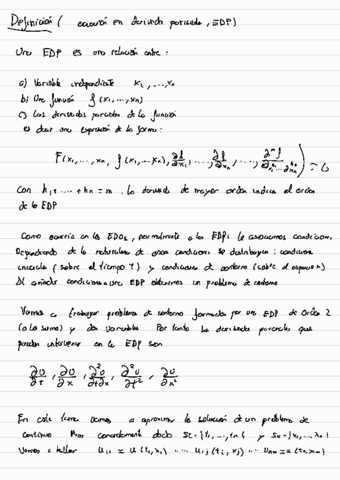 Definición (ecuación en derivada parciales, EDP)
Una EDP es una relación entre:
a) Variable independiente x₁, ..., xₙ
b) Una función f(x₁, ..., xₙ)
c) Las derivadas parciales de la función
es decir una expresión de la forma:
F(x₁, ..., xₙ, f(x₁, ..., xₙ), ∂f/∂x₁, ..., ∂f/∂xₙ, ..., ∂ᵐf/∂x₁ʰ¹...∂xₙʰⁿ) = 0
con h₁ + ... + hₙ = m. La derivada de mayor orden indica el orden
de la EDP
Como ocurría en las EDOs, normalmente a las EDPs le asociamos condiciones.
Dependiendo de la naturaleza de esas condiciones se distinguen: condiciones
iniciales (sobre el tiempo t) y condiciones de contorno (sobre el espacio x)
Al añadir condiciones a una EDP obtenemos un problema de contorno
Vamos a trabajar problemas de contorno formados por una EDP de orden 2
(a lo sumo) y dos variables. Por tanto las derivadas parciales que
pueden intervenir en la EDP son
∂u/∂t, ∂u/∂x, ∂²u/∂t∂x, ∂²u/∂t², ∂²u/∂x²
En este tema vamos a aproximar la solución de un problema de
contorno. Mas concretamente dado St={t₁, ..., tₙ} y Sx={x₁, ..., xₙ}
Vamos a hallar u₁₁ ≈ u(t₁, x₁) ... uᵢⱼ ≈ u(tᵢ, xⱼ) ... uₙₙ ≈ u(tₙ, xₙ)